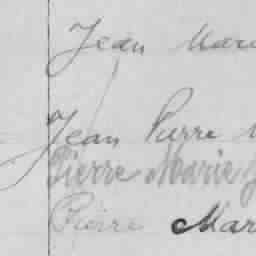 Jean Mari
Jean Pierre
Pierre Marie
Pierre Mar